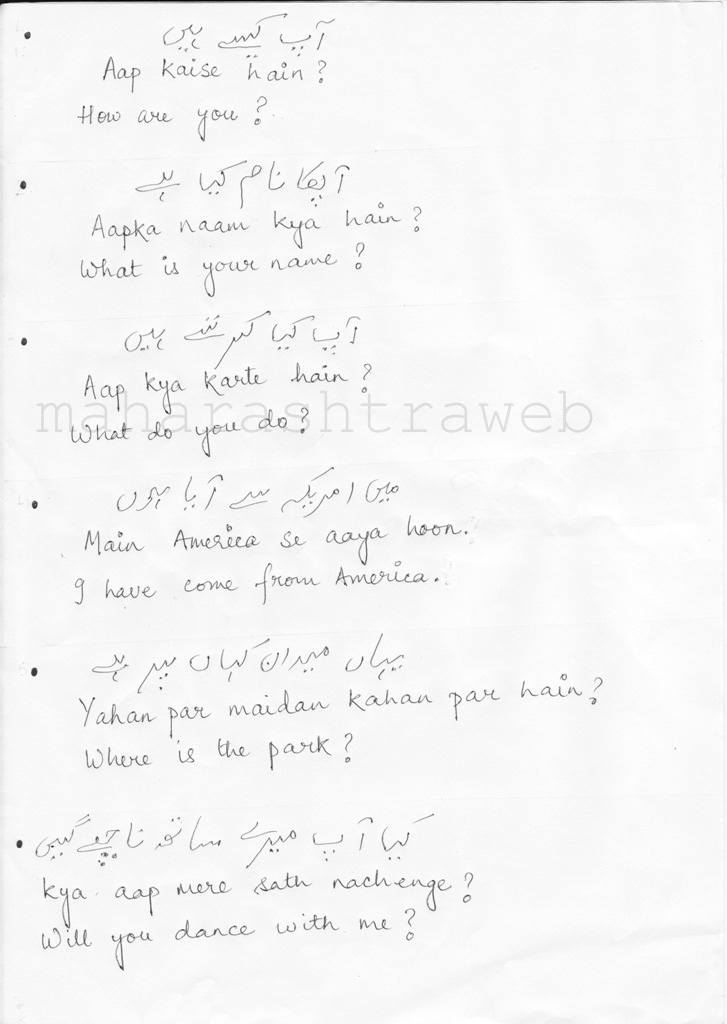 آپ کیسے ہیں
Aap kaise hain?
How are you?
آپکا نام کیا ہے
Aapka naam kya hain?
What is your name?
آپ کیا کرتے ہیں
Aap kya karte hain?
maharashtraweb
What do you do?
میں امریکہ سے آیا ہوں
Main America se aaya hoon.
I have come from America.
یہاں میدان کہاں پر ہے
Yahan par maidan kahan par hain?
Where is the park?
کیا آپ میرے ساتھ ناچےگیں
kya aap mere sath nachenge?
Will you dance with me?